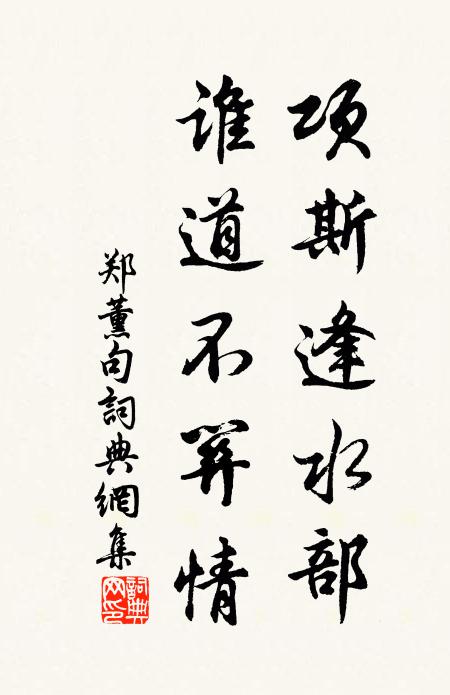 项斯逢水部
谁道不关情
郑薰句詞典網集
詞典网印